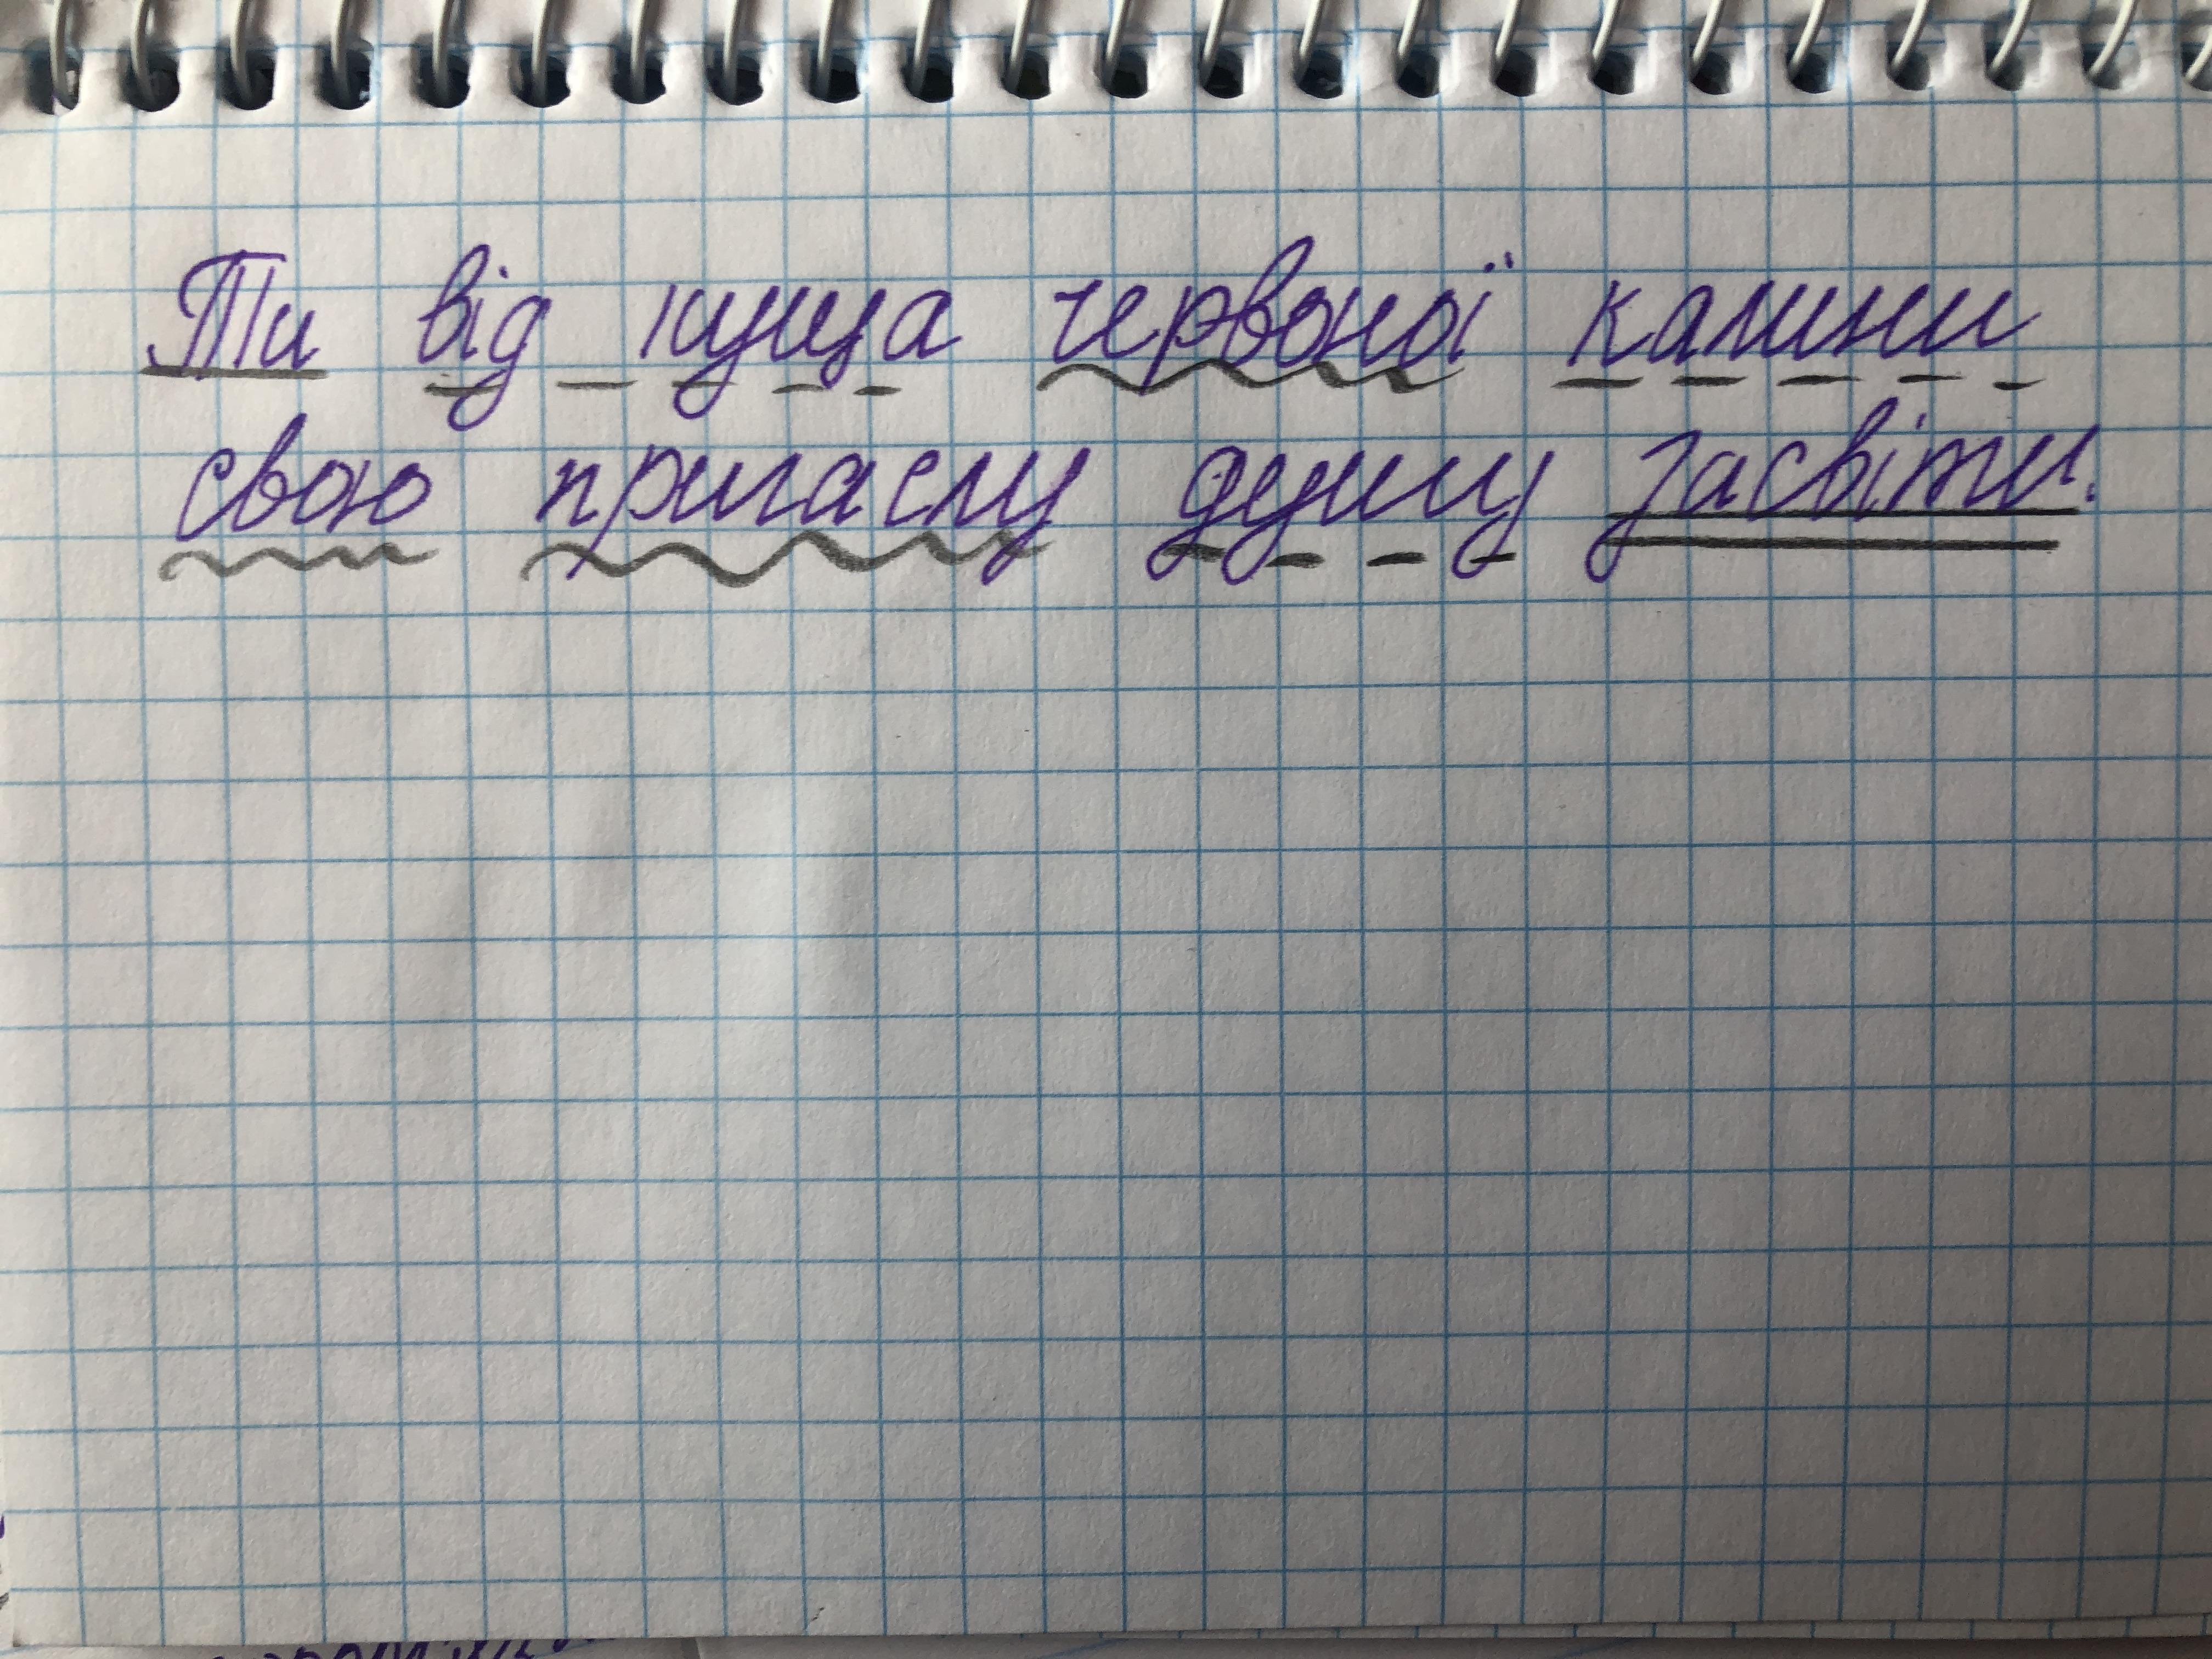 Ти від куща червоної калини
свою пригаслу душу засвіти.